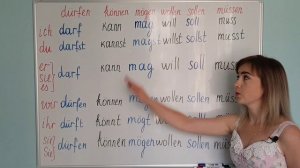 dürfen können mögen wollen sollen müssen
ich darf kann mag will soll muss
du darfst kannst magst willst sollst musst
er sie es darf kann mag will soll
wir dürfen können mögen wollen sollen müssen
ihr dürft könnt mögt wollt sollt
sie/Sie dürfen können mögen wollen sollen müssen